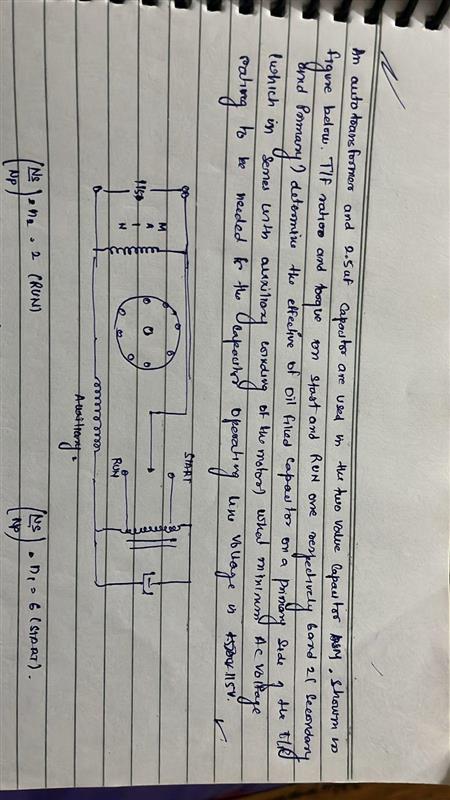 An autotransformer and 2.5uf Capacitor are used in the two value Capacitor ASM, shown in
figure below. T/F ratios and torque on start and RUN are respectively 6 and 2 ( Secondary
and Primary ) determine the effective of oil filled Capacitor on a primary side of the T/F
(which in series with auxiliary winding of the motor) what minimum Ac Voltage
rating to be needed for the Capacitor operating line Voltage is 115V.
START
RUN
115V
M
A
I
N
Auxiliary
(Ns/Np) = n2 = 2 (RUN)
(Ns/Np) = n1 = 6 (START).